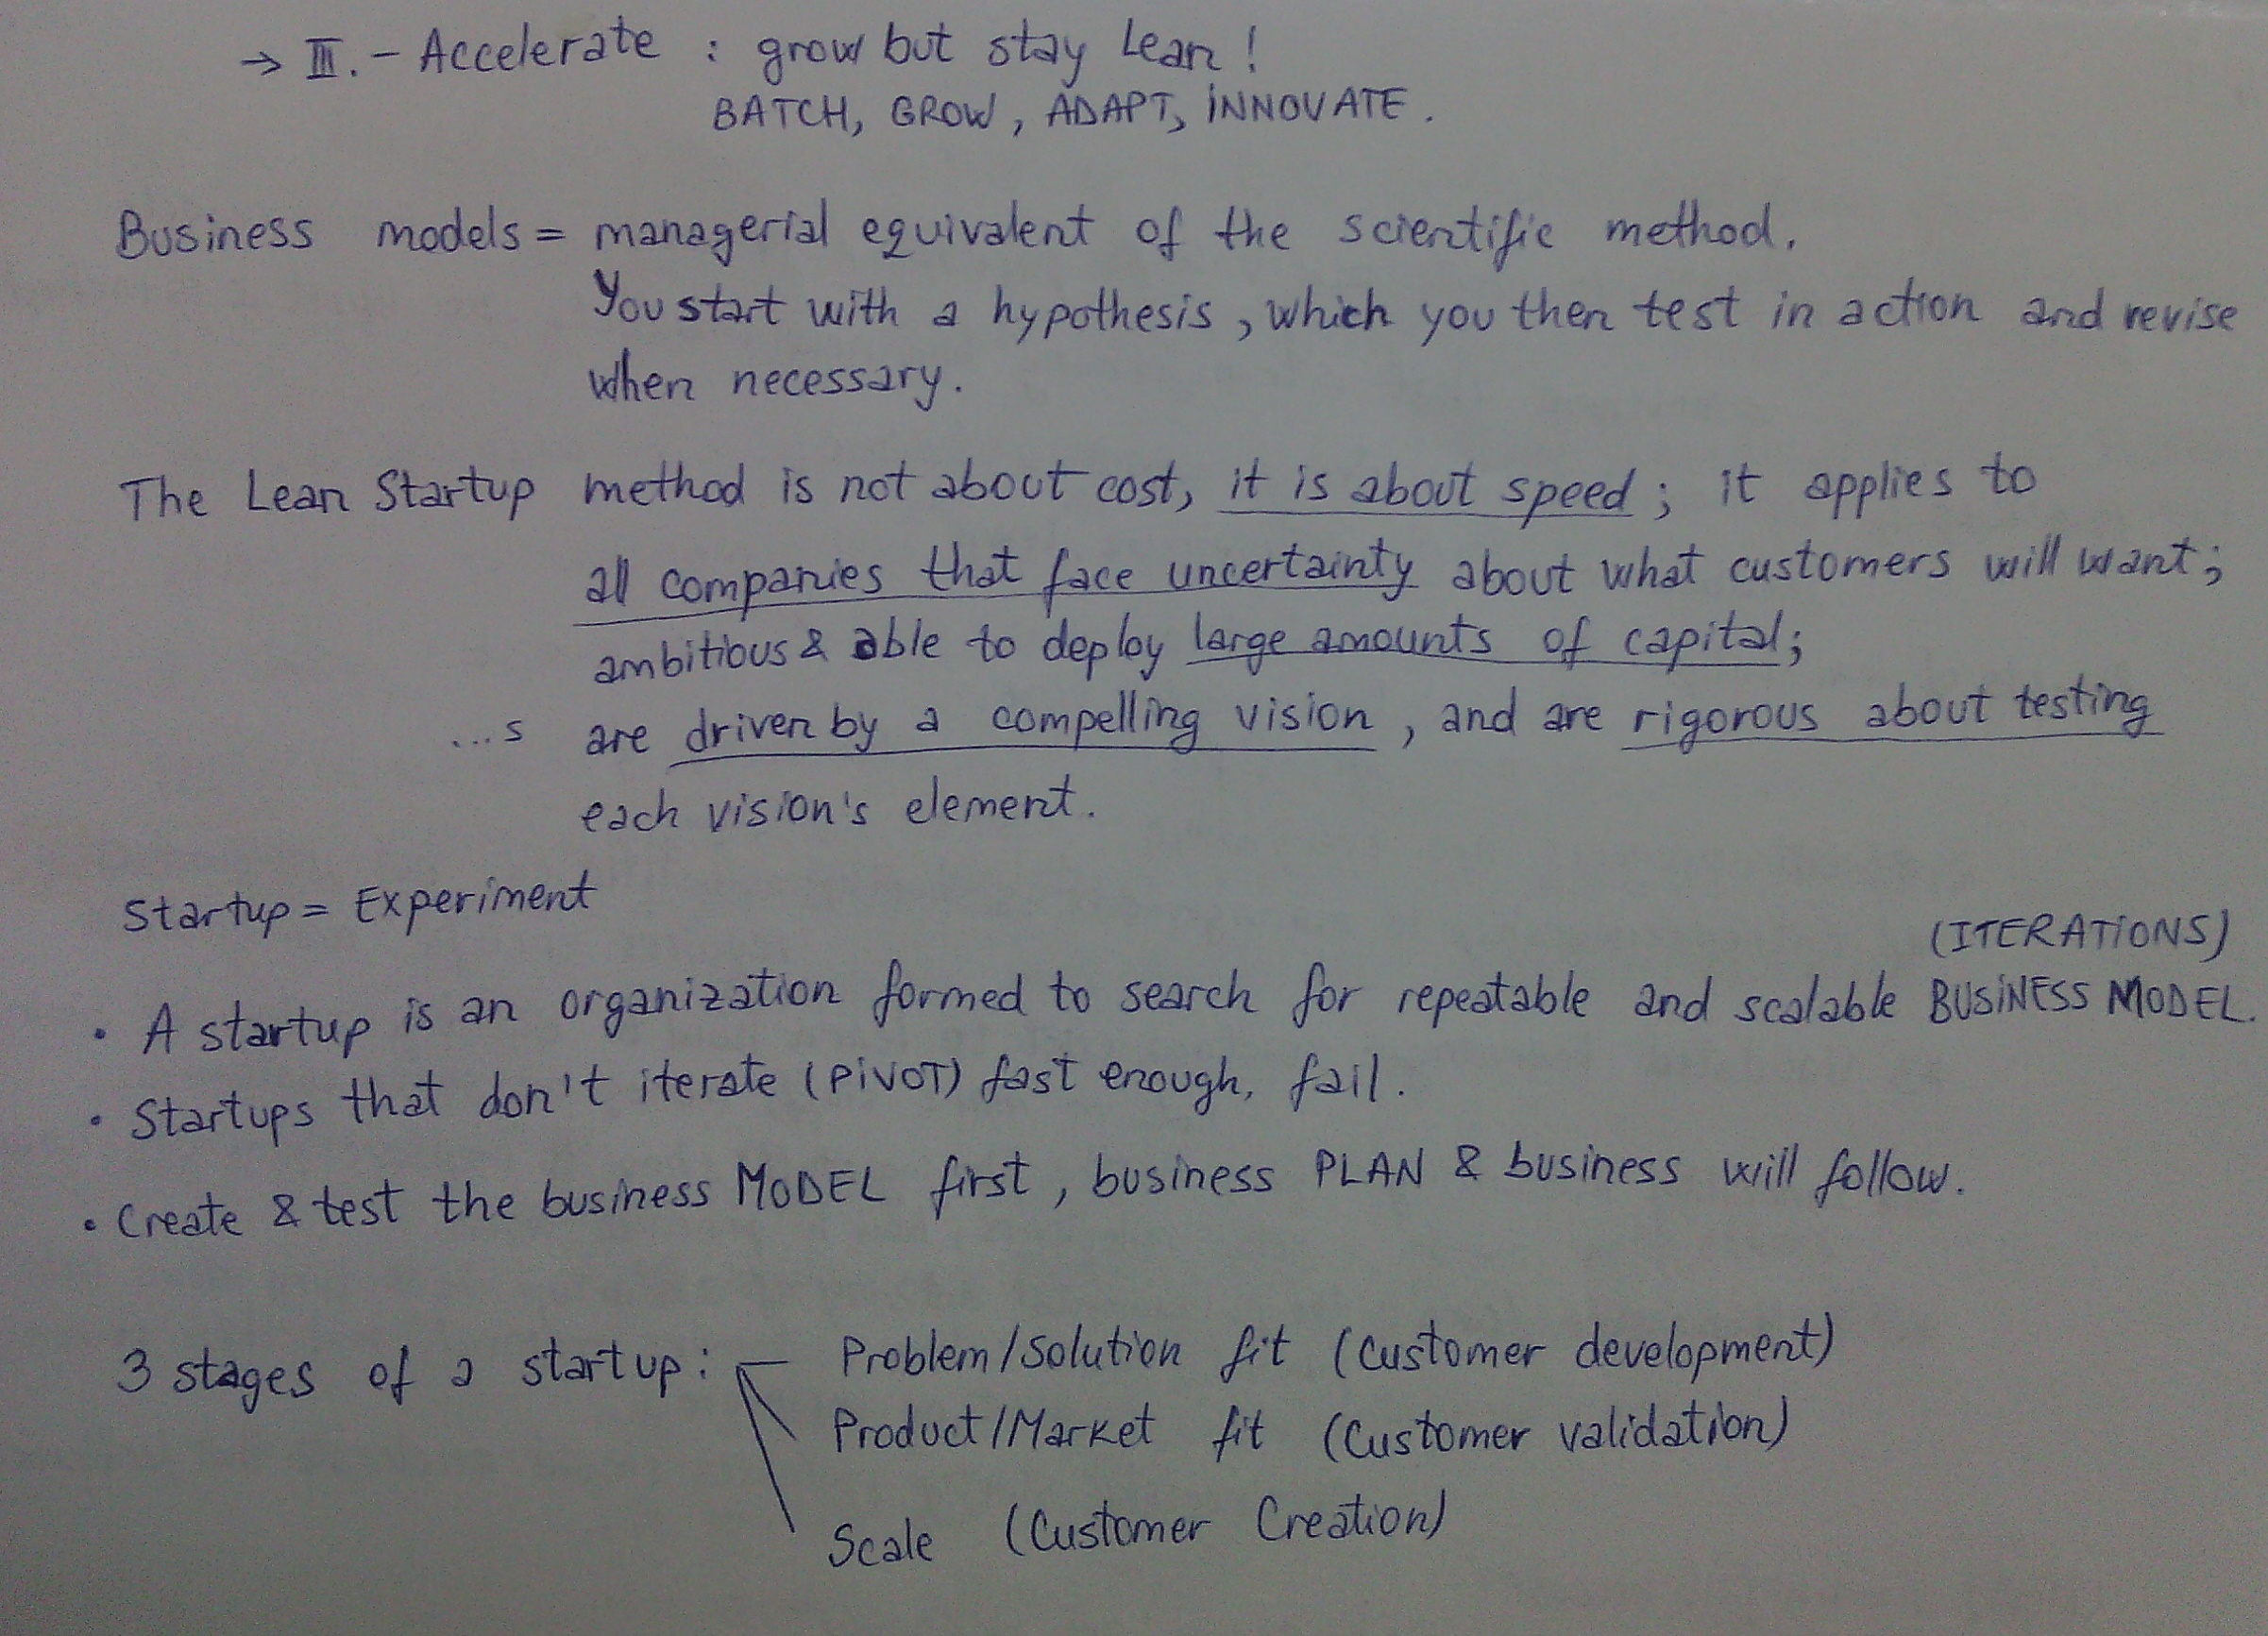 → III. - Accelerate : grow but stay Lean !
BATCH, GROW, ADAPT, INNOVATE.
Business models = managerial equivalent of the scientific method.
You start with a hypothesis, which you then test in action and revise
when necessary.
The Lean Startup method is not about cost, it is about speed; it applies to
all companies that face uncertainty about what customers will want;
ambitious & able to deploy large amounts of capital;
...s are driven by a compelling vision, and are rigorous about testing
each vision's element.
Startup = Experiment
(ITERATIONS)
• A startup is an organization formed to search for repeatable and scalable BUSINESS MODEL.
• Startups that don't iterate (PIVOT) fast enough, fail.
• Create & test the business MODEL first, business PLAN & business will follow.
3 stages of a startup: Problem/Solution fit (Customer development)
Product/Market fit (Customer validation)
Scale (Customer Creation)